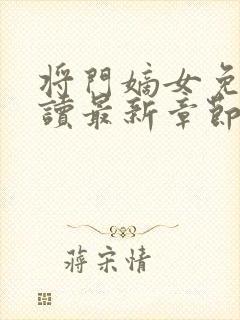 将門嫡女免
讀最新章節
蔣宋情